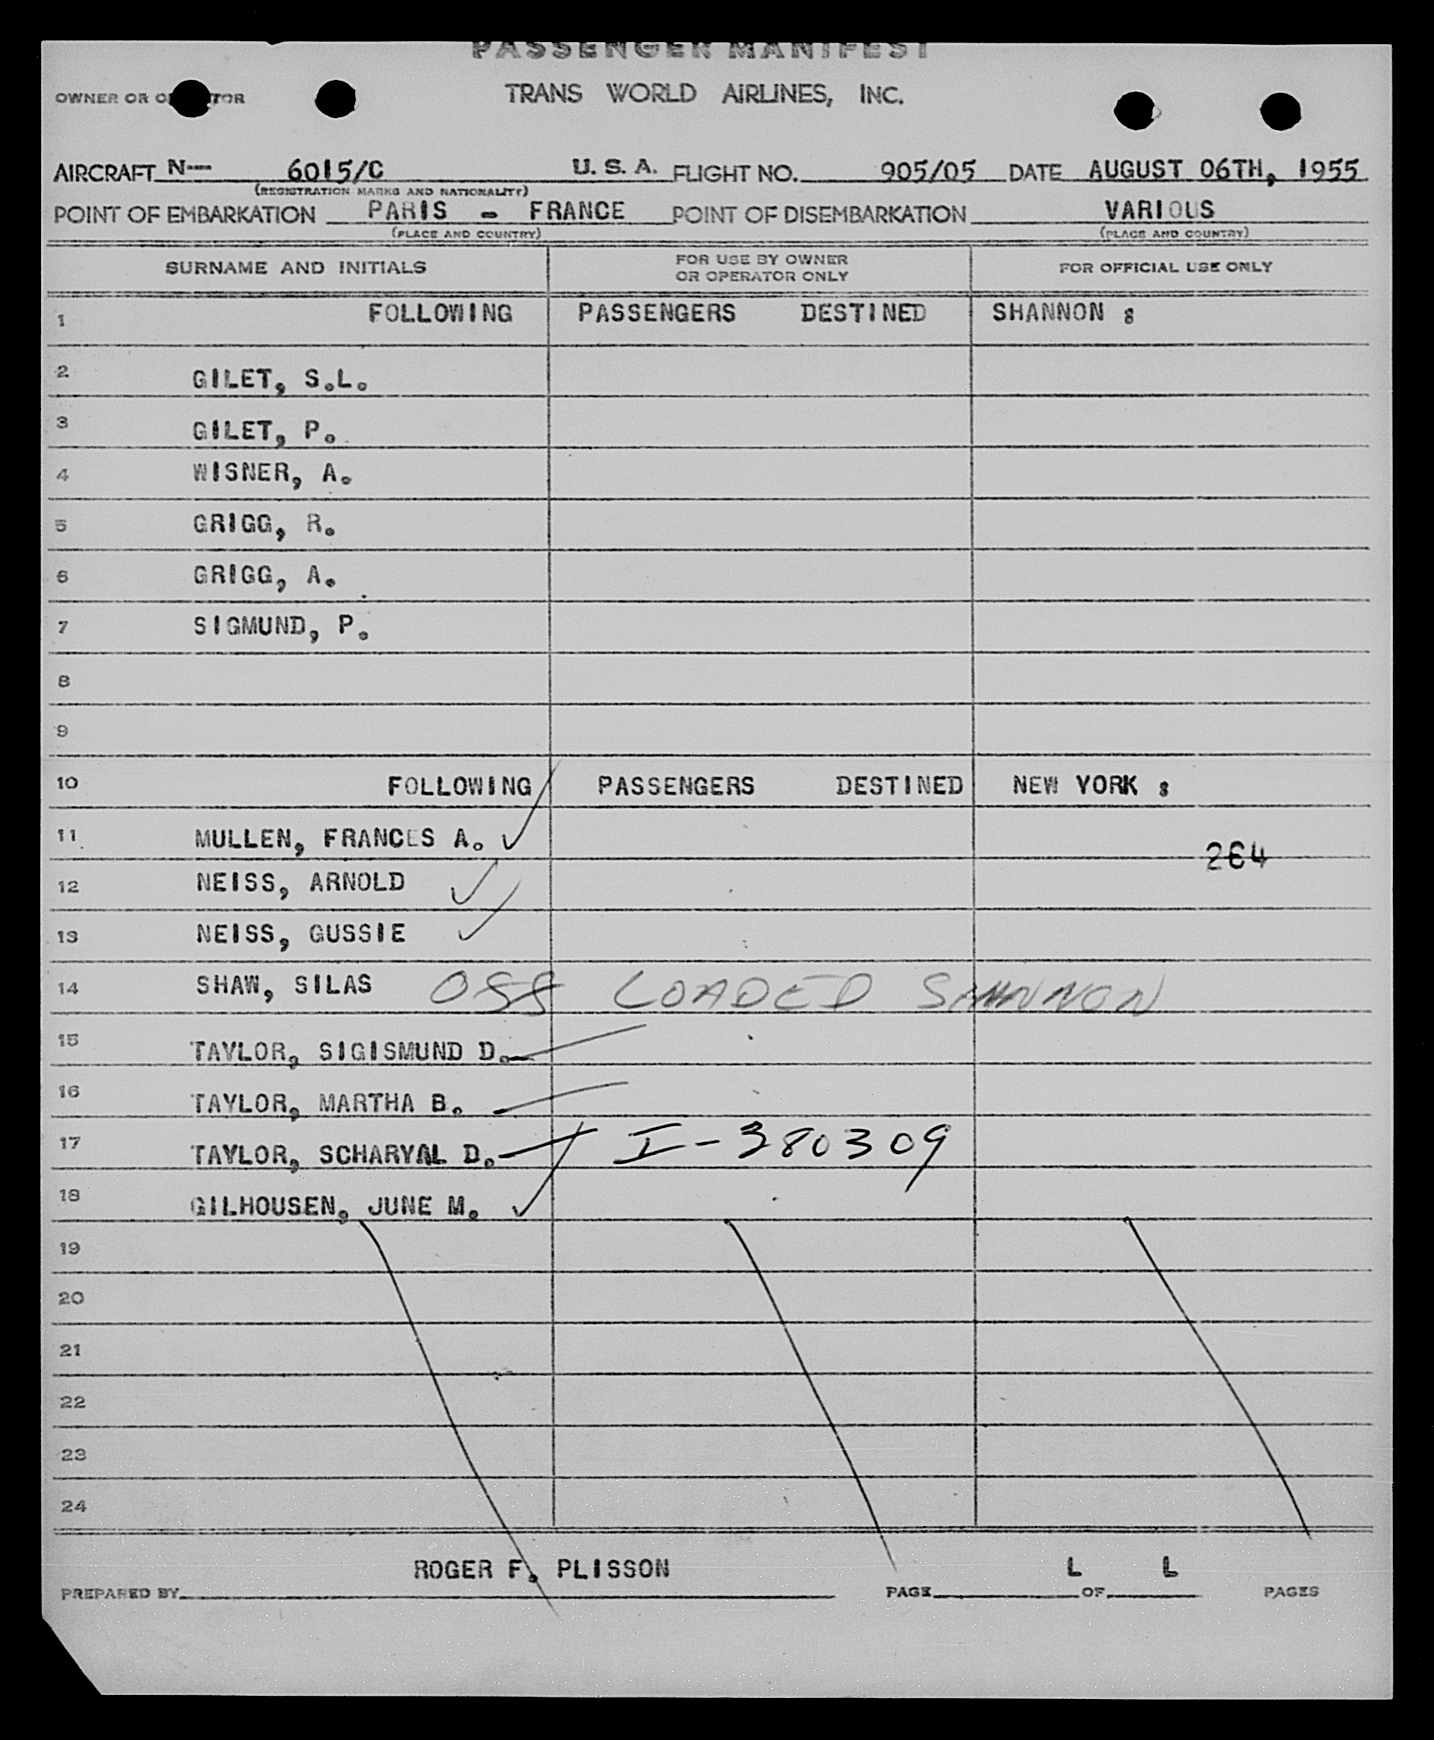 PASSENGER MANIFEST
OWNER OR OPERATOR TRANS WORLD AIRLINES, INC.
AIRCRAFT N-- 6015/C U. S. A. FLIGHT NO. 905/05 DATE AUGUST 06TH, 1955
(REGISTRATION MARKS AND NATIONALITY)
POINT OF EMBARKATION PARIS - FRANCE POINT OF DISEMBARKATION VARIOUS
(PLACE AND COUNTRY) (PLACE AND COUNTRY)
SURNAME AND INITIALS FOR USE BY OWNER OR OPERATOR ONLY FOR OFFICIAL USE ONLY
1 FOLLOWING PASSENGERS DESTINED SHANNON :
2 GILET, S.L.
3 GILET, P.
4 WISNER, A.
5 GRIGG, R.
6 GRIGG, A.
7 SIGMUND, P.
8
9
10 FOLLOWING PASSENGERS DESTINED NEW YORK :
11 MULLEN, FRANCES A. ✓
264
12 NEISS, ARNOLD ✓
13 NEISS, GUSSIE ✓
14 SHAW, SILAS OFF LOADED SHANNON
15 TAYLOR, SIGISMUND D.
16 TAYLOR, MARTHA B.
17 TAYLOR, SCHARYAL D. I-380309
18 GILHOUSEN, JUNE M. ✓
19
20
21
22
23
24
PREPARED BY ROGER F. PLISSON PAGE L OF L PAGES